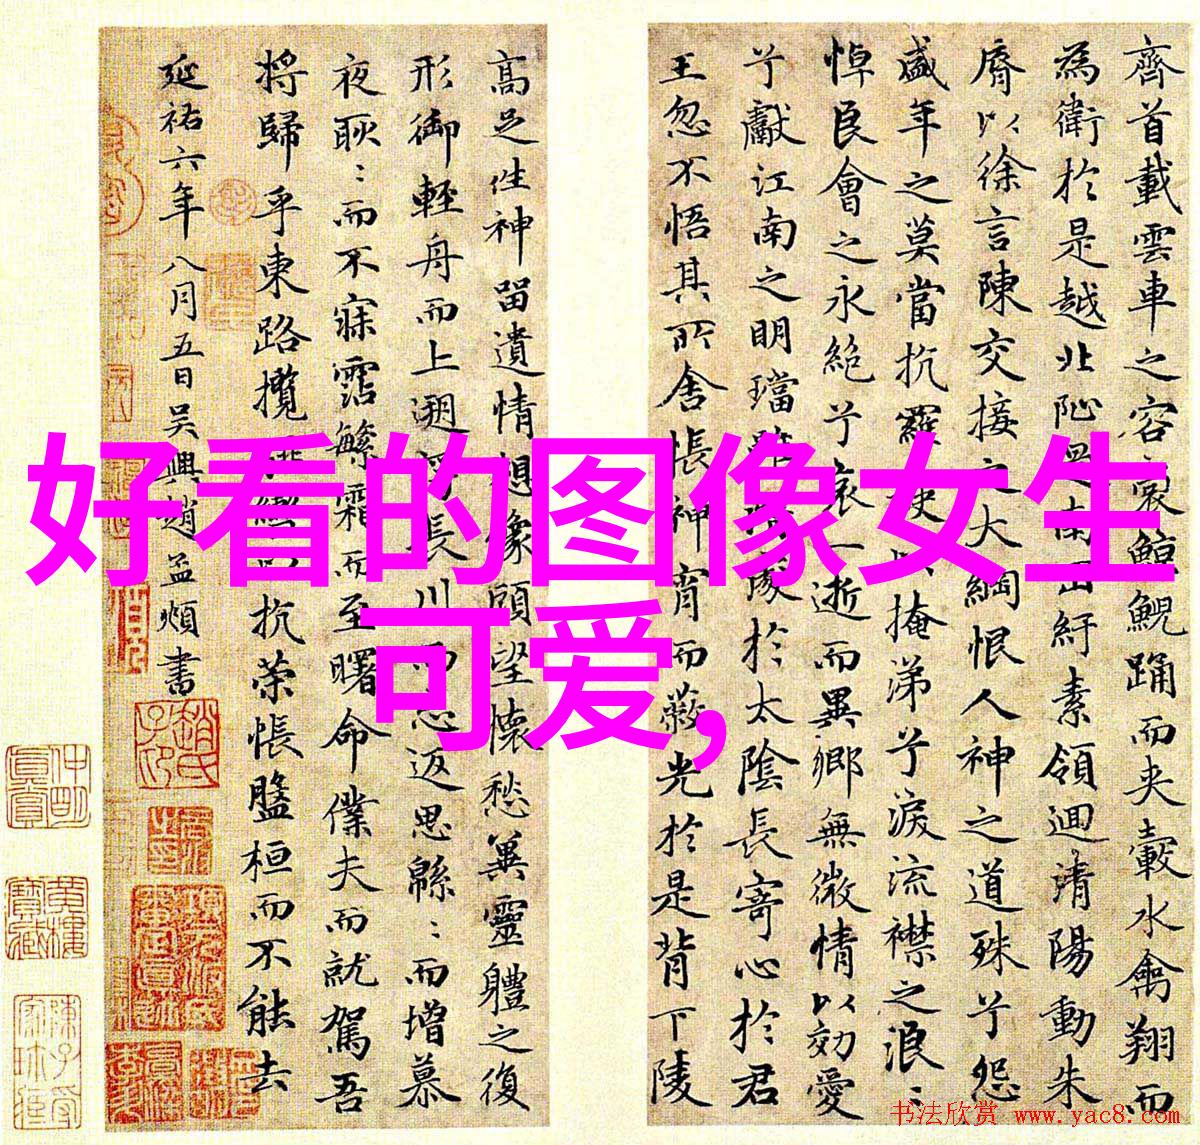 齊首載雲車之容裔鯨鯢踊而夾轂水禽翔而
為衛於是越北沚過南岡紆素領迴清陽動朱
脣以徐言陳交接之大綱恨人神之道殊兮怨
盛年之莫當抗羅袂以掩涕兮淚流襟之浪〻
悼良會之永絕兮哀一逝而異鄉無微情以効愛
兮獻江南之明璫雖潛處於太陰長寄心於君
王忽不悟其所舍悵神宵而蔽光於是背下陵
高足往神留遺情想像顧望懷愁冀靈體之復
形御輕舟而上遡浮長川而忘返思綿〻而增慕
夜耿〻而不寐霑繁霜而至曙命僕夫而就駕吾
將歸乎東路攬騑轡以抗策悵盤桓而不能去
延祐六年八月五日吳興趙孟頫書
好看的图像女生
可爱,
书法欣赏 www.yac8.com